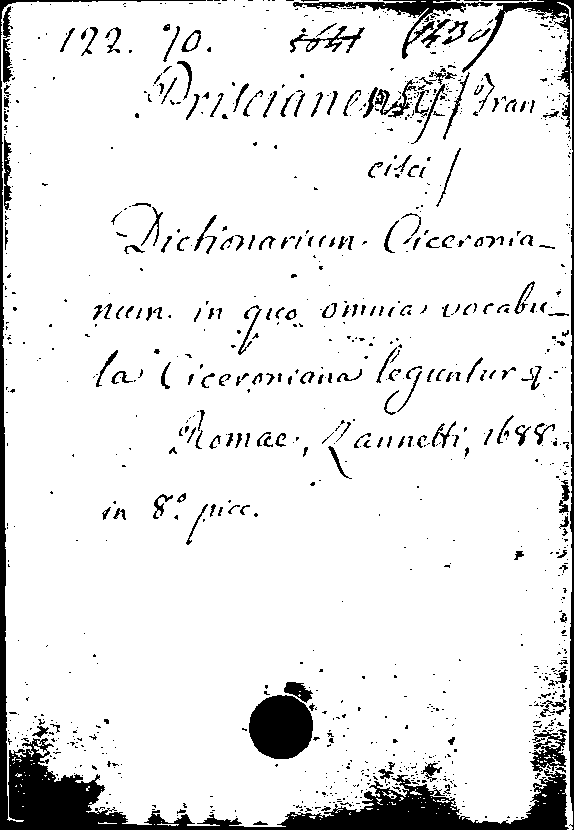 122. 70. (430)
Priscianensis / Fran
cisci /
Dictionarium Ciceronia-
num in quo omnia vocabu-
la Ciceroniana leguntur &.
Romae, Zannetti, 1688.
in 8.° picc.